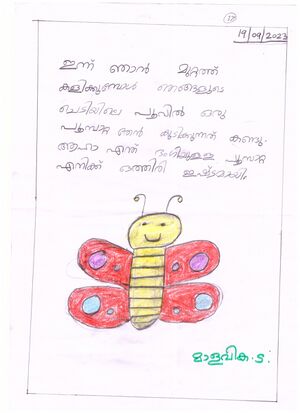 37
19/09/2023
ഇന്ന് ഞാൻ മുറ്റത്ത്
കളിക്കുമ്പോൾ ഞങ്ങളുടെ
ചെടിയിലെ പൂവിൽ ഒരു
പൂമ്പാറ്റ തേൻ കുടിക്കുന്നത് കണ്ടു.
ആഹാ എന്ത് ഭംഗിയുള്ള പൂമ്പാറ്റ
എനിക്ക് ഒത്തിരി ഇഷ്ടമായി.
മാളവിക. ടി.